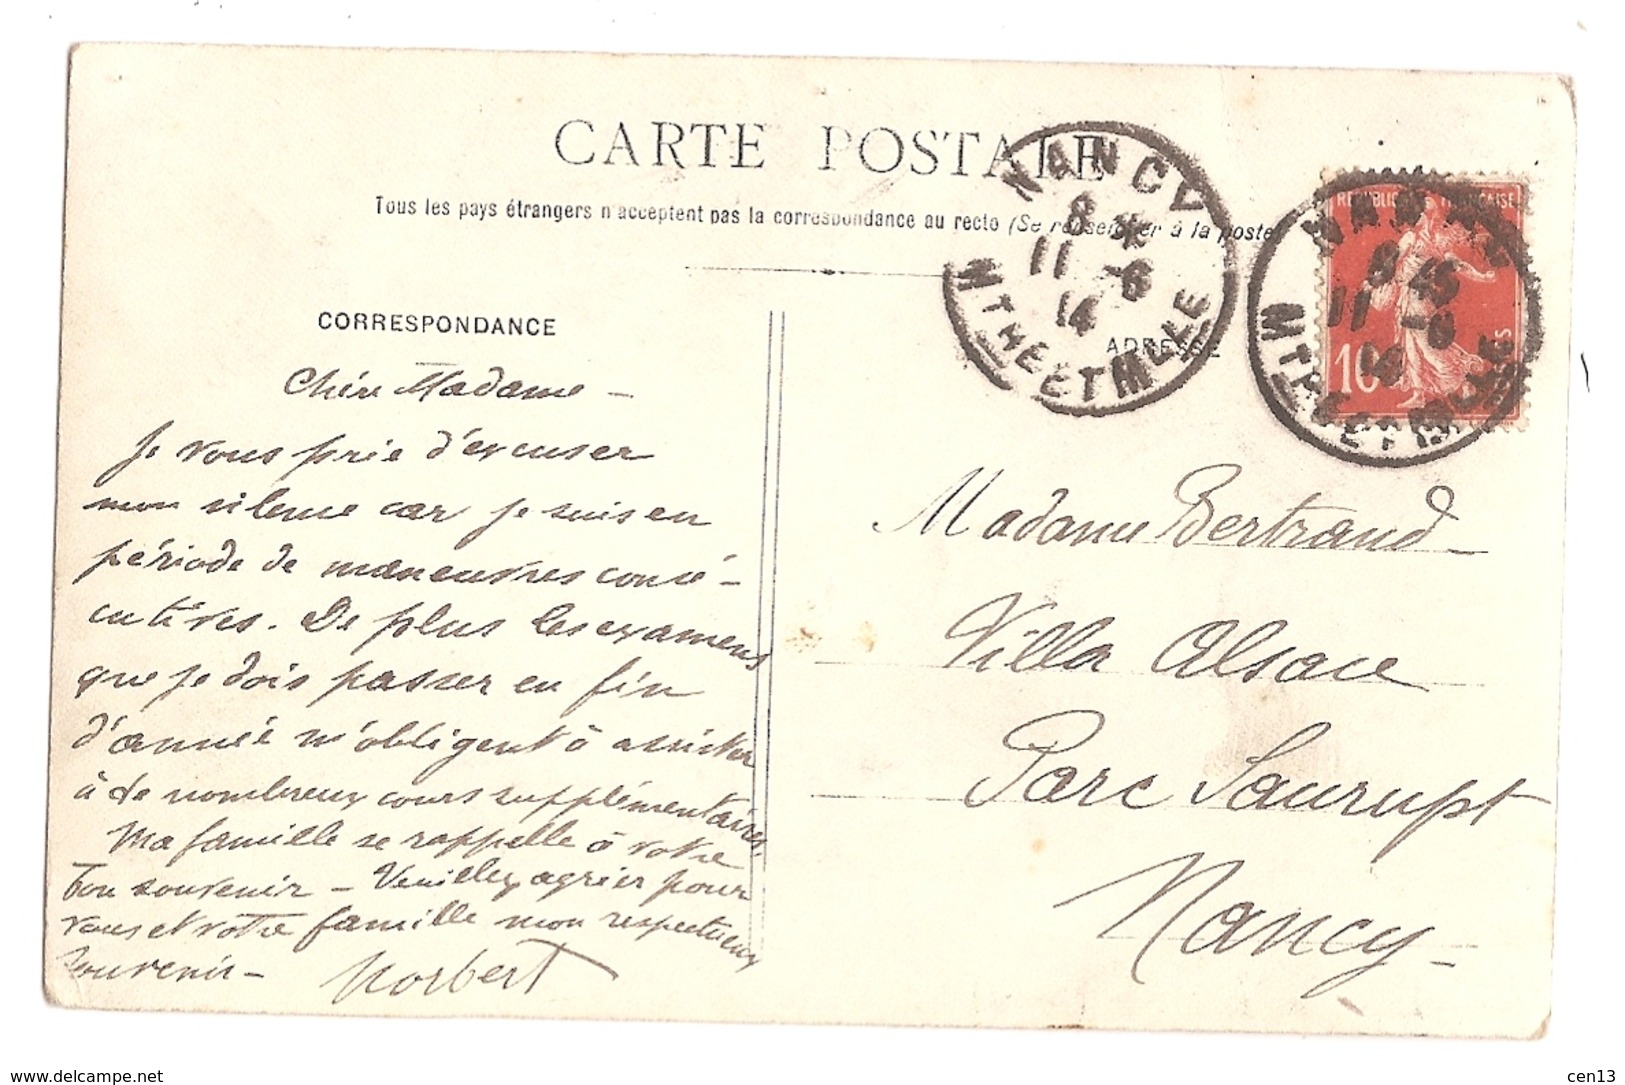 CARTE POSTALE
Tous les pays étrangers n'acceptent pas la correspondance au recto (Se renseigner à la poste)
NANCY
8
11 -6
14
MTHE ET MLLE
NANCY
8 45
11 -6
14
MTHE ET MLLE
REPUBLIQUE FRANÇAISE
10
CORRESPONDANCE
ADRESSE
Chère Madame -
Je vous prie d'excuser
mon silence car je suis en
période de manœuvres consé-
cutives. De plus les examens
que je dois passer en fin
d'année m'obligent à assister
à de nombreux cours supplémentaires.
Ma famille se rappelle à votre
bon souvenir - Veuillez agréer pour
vous et votre famille mon respectueux
souvenir -
Norbert
Madame Bertrand -
Villa Alsace
Parc Saurupt
Nancy -
www.delcampe.net
cen13